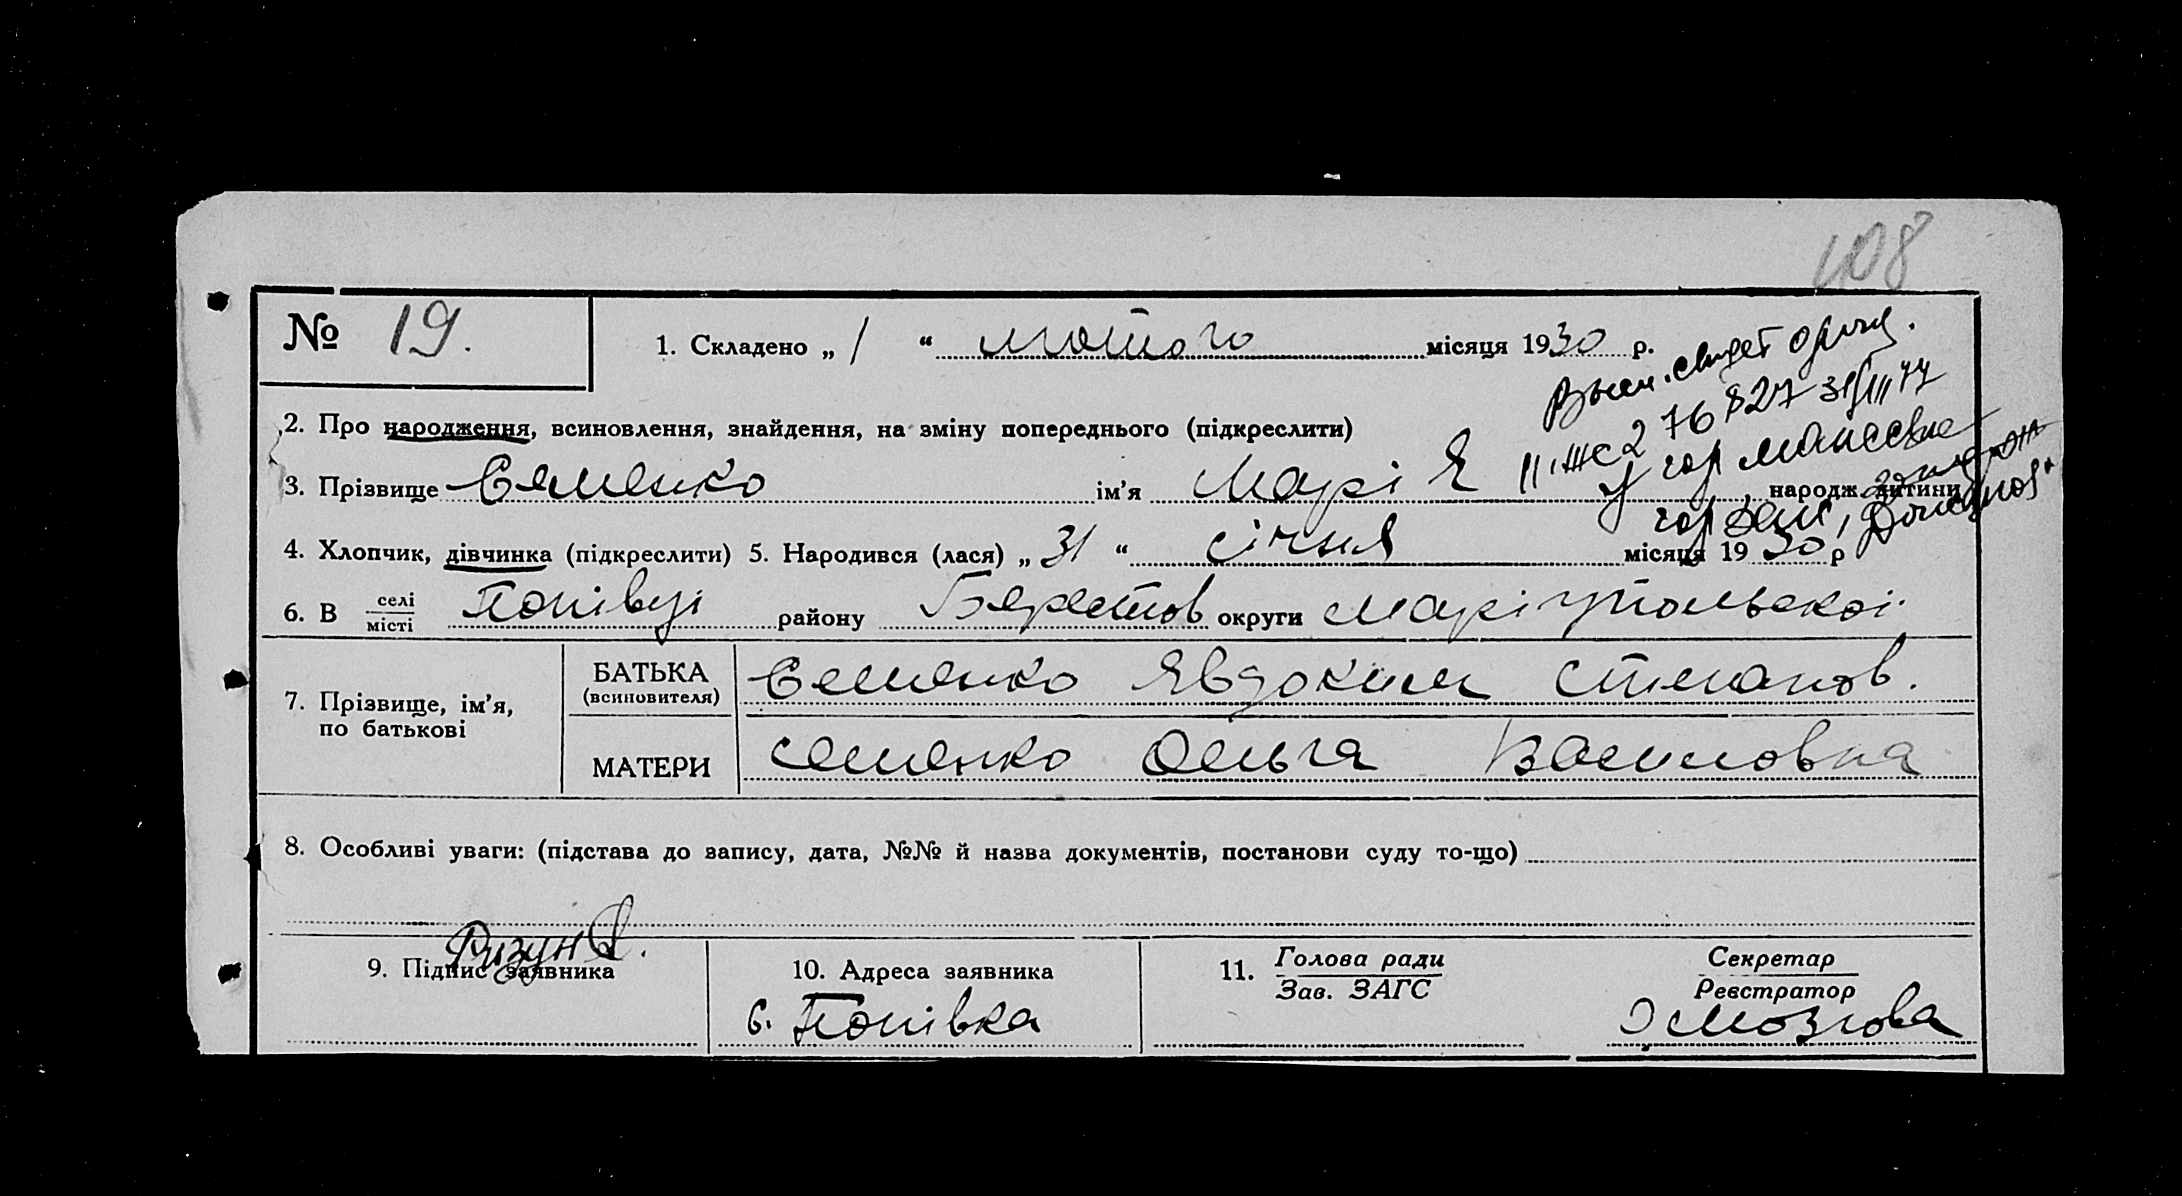 108
№ 19.
1. Складено „ 1 “ лютого місяця 1930 р.
2. Про народження, всиновлення, знайдення, на зміну попереднього (підкреслити)
3. Прізвище Семенко ім’я Марія народж. дитини
II ЖС 276827 31/III 77
4. Хлопчик, дівчинка (підкреслити) 5. Народився (лася) „ 31 “ січня місяця 1930 р
6. В селі місті Попівці району Берестов округи Маріупольскоі.
7. Прізвище, ім’я, по батькові
БАТЬКА (всиновителя) Семенко Явдоким Степанов.
МАТЕРИ Семенко Ольга Василовна
8. Особливі уваги: (підстава до запису, дата, №№ й назва документів, постанови суду то-що)
9. Підпис заявника Ризун
10. Адреса заявника
с. Попівка
11. Голова ради
Зав. ЗАГС
Секретар
Реєстратор
Мозгова